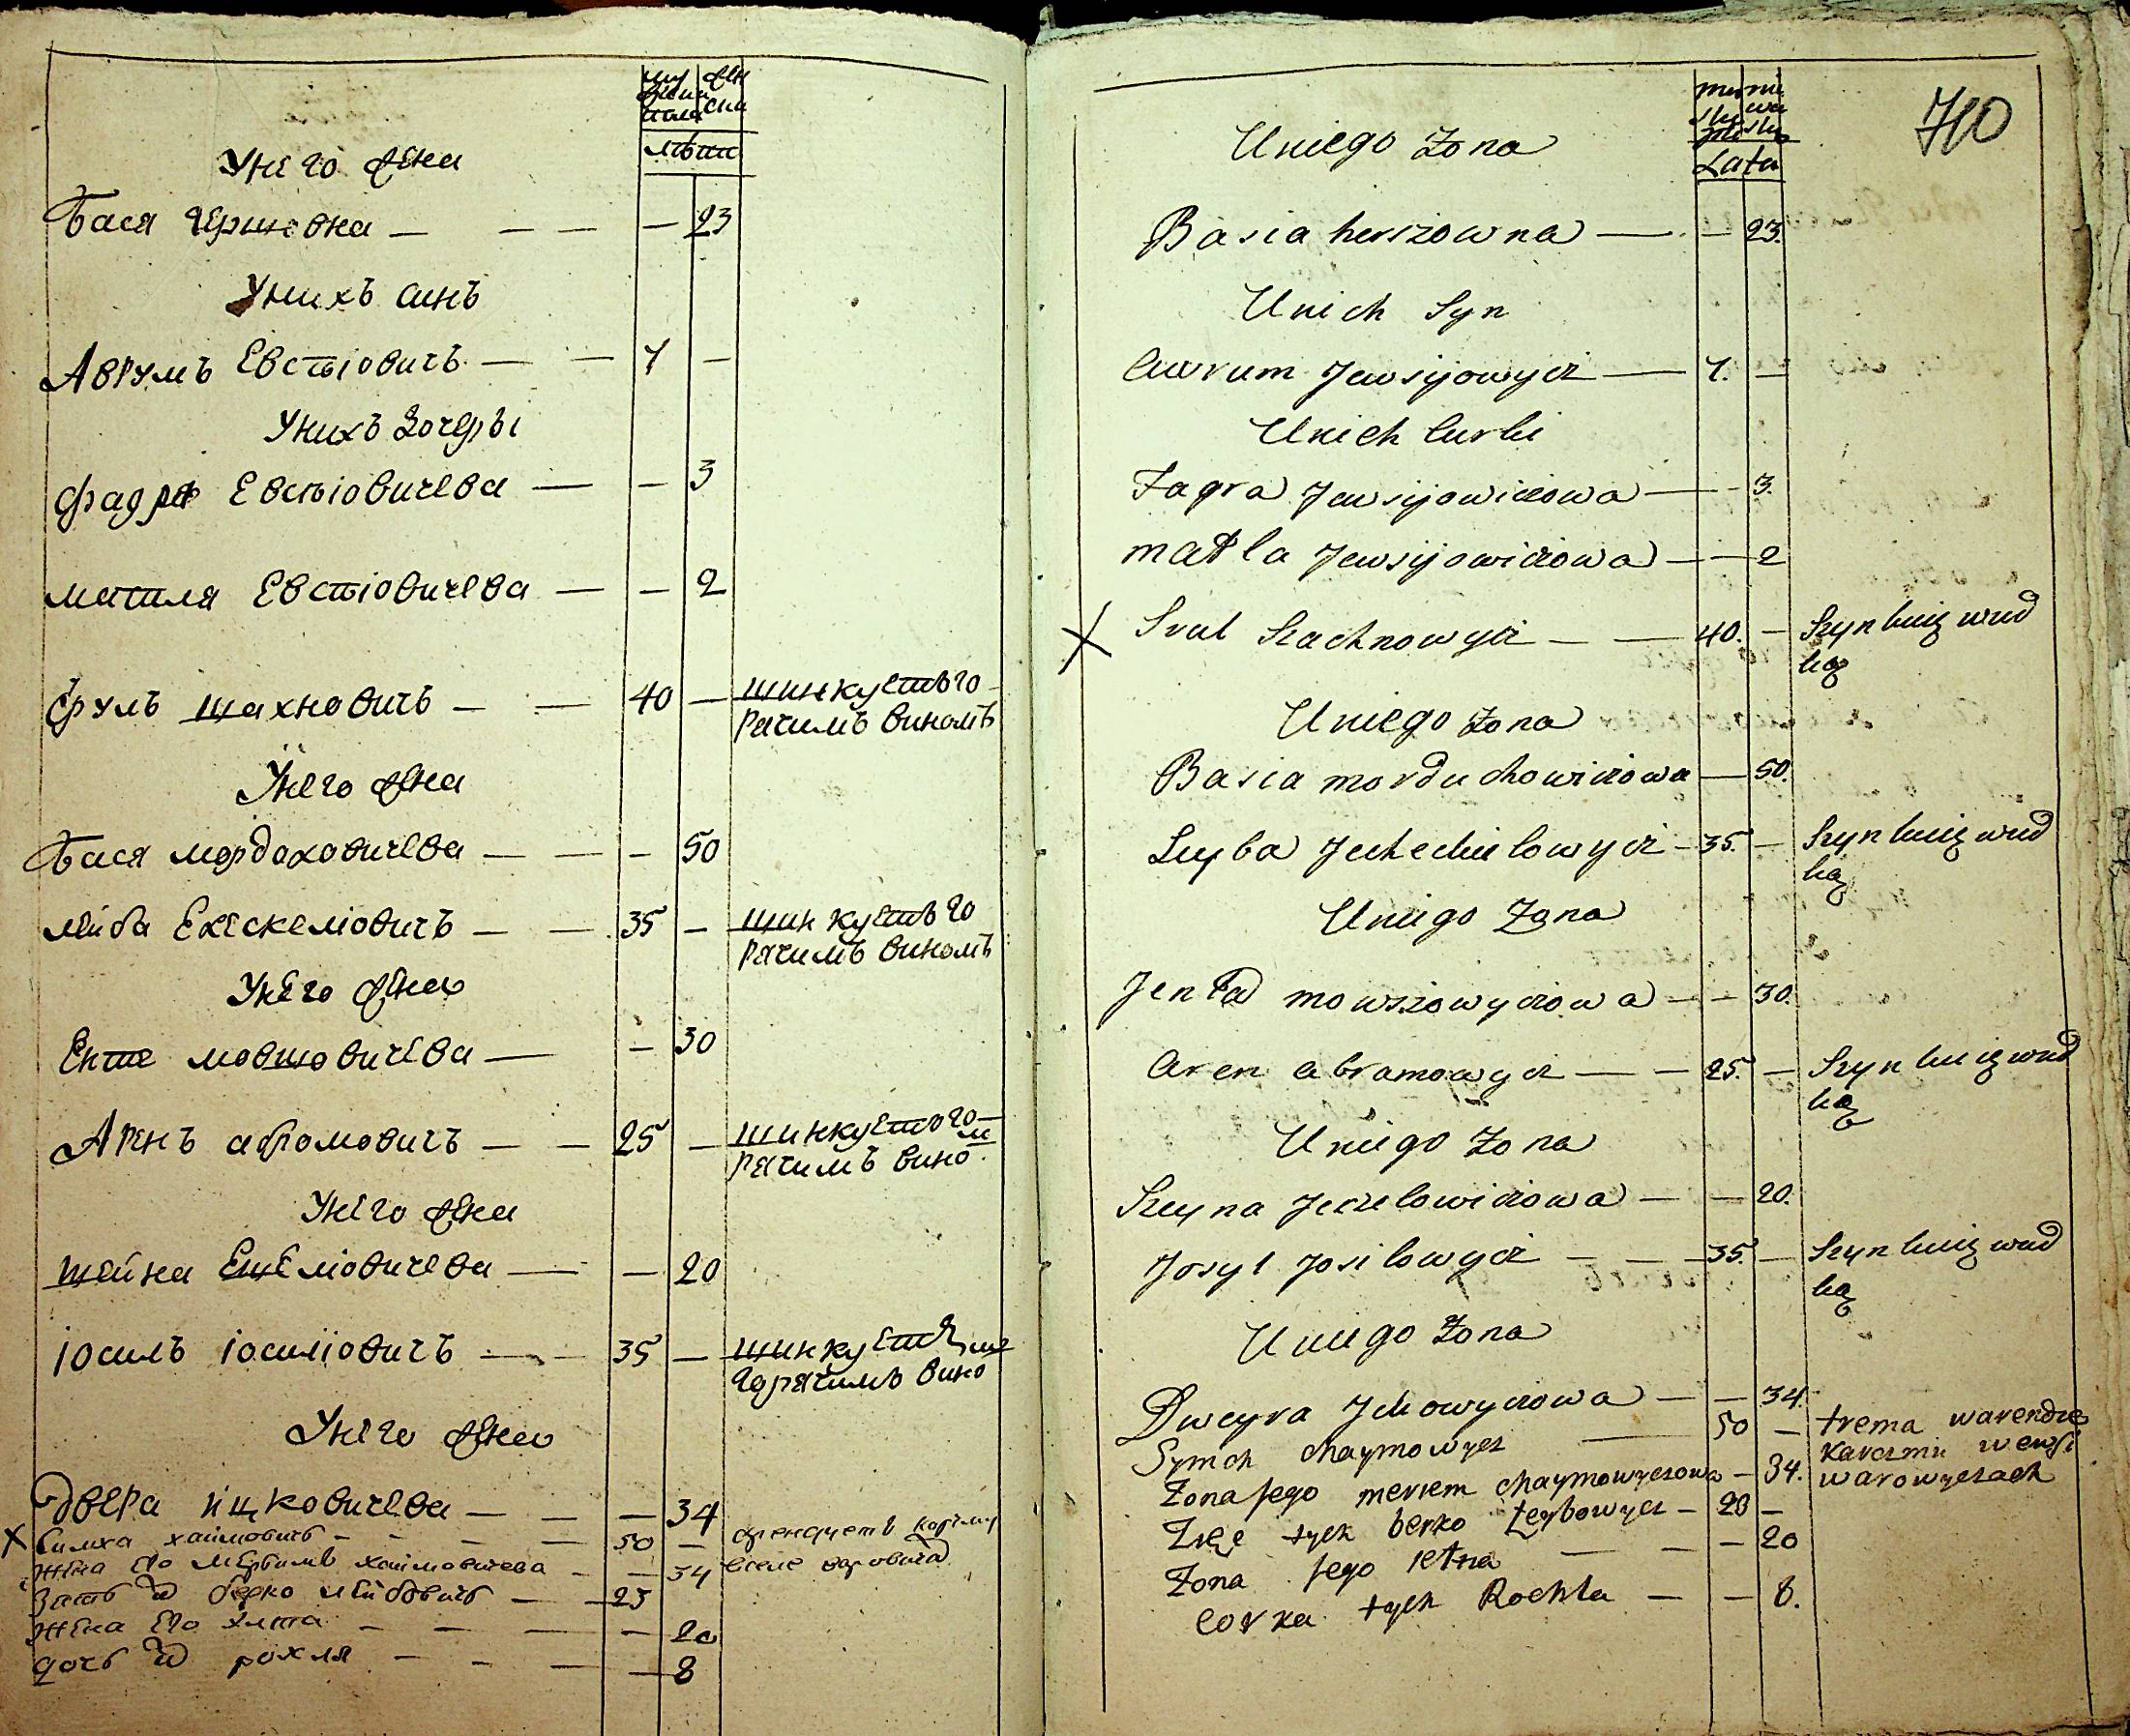 му жеска пола
жен ски
лѣты
Унего жена
Бася Гершовна — — — — 23
Унихъ синъ
Аврумъ Евстіовичъ — — 7 —
Унихъ дочеры
Фадря Евстіовичева — — 3
матля Евстіовичева — — 2
Сруль Шахновичъ — — 40 — шинкуетъ го
рачимъ виномъ
Унего жена
Бася мордаховичева — — — 50
лейба Ехескеліовичъ — — 35 — шинкуетъ го
рячимъ виномъ
Унего жена
Енте мовшовичева — — 30
Аренъ абрамовичъ — — 25 — шинкуетъ го
рячимъ виномъ
Унего жена
Шейна Ещеліовичева — — 20
Іосиль Іосиліовичъ — — 35 — шинкуетъ
горячимъ вино
Унего жена
Двера ицковичева — — — 34
X Симха хаимовичъ — — — 50 — арендуетъ корчму
жена его мериамъ хаимовичева — — 34 в селе варовичах
зять их берко лейбовичъ — 23
жена его хэтта — — — — 20
дочъ их рохля — — — — 8
710
mu sku płci
nie wia sku
Lata
Uniego Zona
Basia herszowna — — 23.
Unich Syn
Awrum Jewsijowycz — 7. —
Unich Curki
Fagra Jewsijowiczowa — — 3.
matla Jewsijowiczowa — — 2
X Srul Szachnowycz — — 40. — Szynkuię wud
ką
Uniego Zona
Basia morduchowiczowa — 50.
Leyba Jechechielowycz — 35. — Szynkuię wud
ką
Uniego Zona
Jenta mowszowyczowa — — 30.
Aren abramowycz — — 25. — Szynkuię wud
ką
Uniego Zona
Szeyna Jeczelowiczowa — — 20.
Josyl Josilowycz — — 35. — Szynkuię wud
ką
Uniego Zona
Dweyra Ickowyczowa — — 34.
Symch chaymowycz — 50 — trema warendzie
Zona jego meriem chaymowyczowa — 34. karczmu wewsi
warowyczach
Zięc tych berko Leybowycz — 23 —
Zona jego ietna — — — 20
corka tych Rochla — — 8.